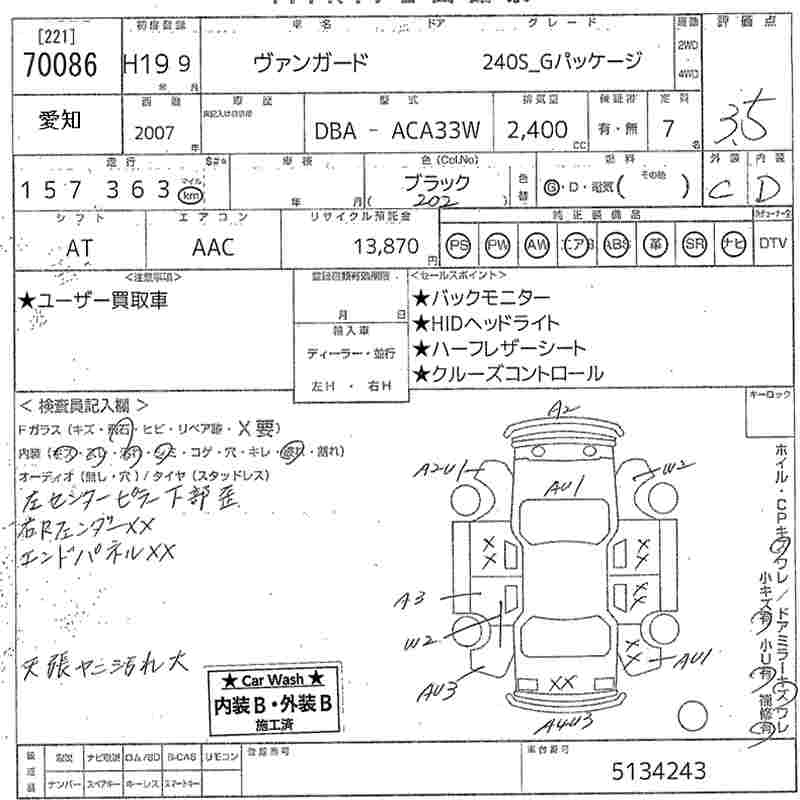 [221]
70086
初度登録
H19 9
年 月
車名
ヴァンガード
ドア
グレード
240S_Gパッケージ
2WD
4WD
評価点
3.5
愛知
西暦
2007
年
車歴
型式
DBA - ACA33W
排気量
2,400
CC
保証書
有・無
定員
7
名
走行
157363
マイル
km
車検
年 月
色(Col.No)
ブラック
( 202 )
色替
燃料
G・D・電気( その他 )
外装
C
内装
D
シフト
AT
エアコン
AAC
リサイクル預託金
13,870
円
純正装備品
PS PW AW エアB ABS 革 SR ナビ
DTV
<注意事項>
★ユーザー買取車
月 日
輸入車
ディーラー・並行
左H ・ 右H
<セールスポイント>
★バックモニター
★HIDヘッドライト
★ハーフレザーシート
★クルーズコントロール
キーロック
< 検査員記入欄 >
Fガラス(キズ・飛石・ヒビ・リペア跡・X要)
コゲ・穴・キレ・
オーディオ(無し・穴)/タイヤ(スタッドレス)
左センターピラー下部歪
右Rフェンダー XX
エンドパネル XX
天張ヤニ汚れ大
A2
A2U1
W2
AU1
XX
XX
XX
A3
W2
XX
AU1
AU3
XX
A4U3
ホイル・CPキズワレ/ドアミラーキズワレ
小キズ有 小U有 補修有
★ Car Wash ★
内装B・外装B
施工済
後送品
取説
ナビ取説
ロム/SD
B-CAS
リモコン
ナンバー
スペアキー
キーレス
スマートキー
登録番号
車台番号
5134243